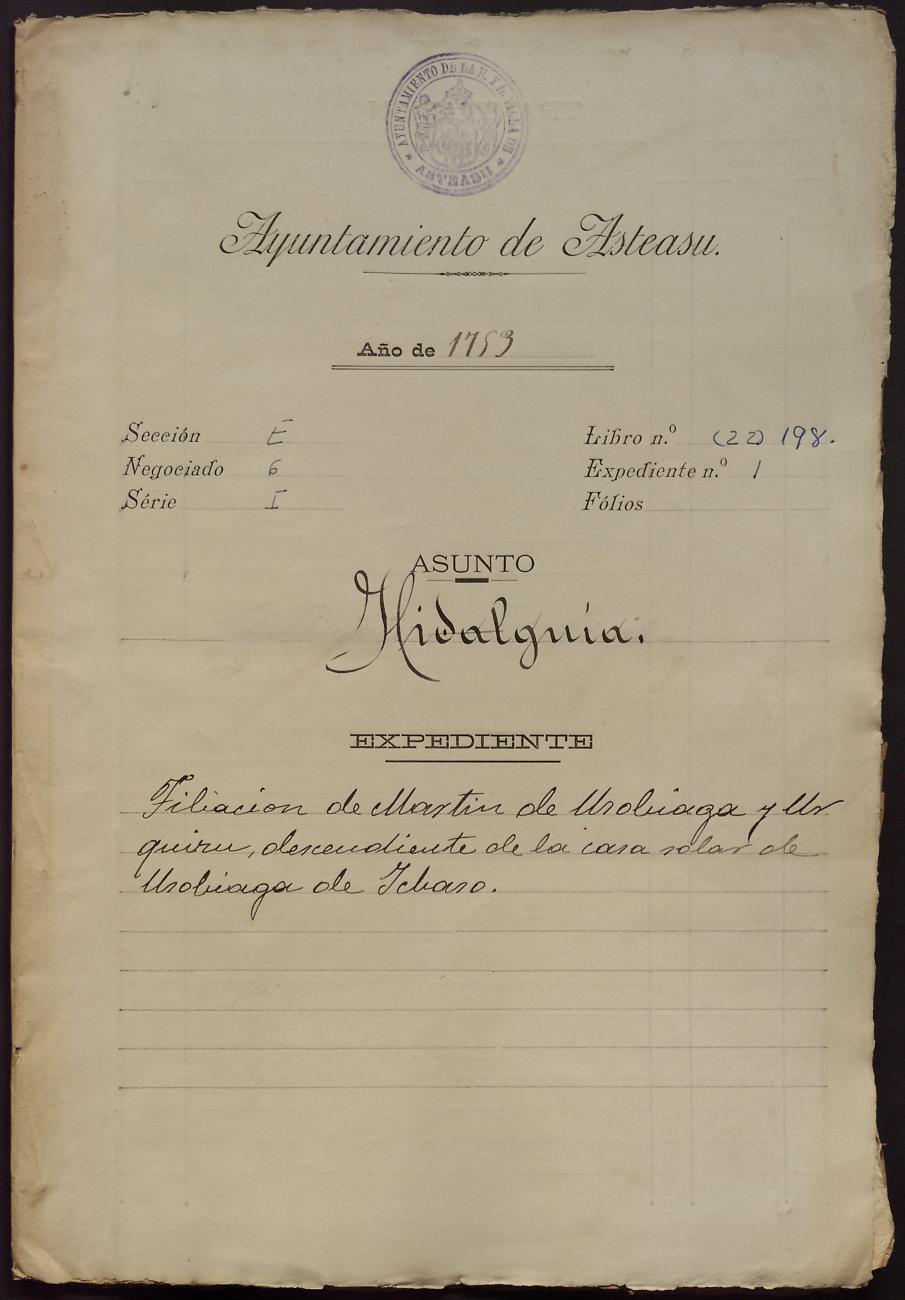 AYUNTAMIENTO DE LA N. Y L. VILLA DE
* ASTEASU *
Ayuntamiento de Asteasu.
Año de 1753
Sección E
Libro n.º (22) 198.
Negociado 6
Expediente n.º 1
Série I
Fólios
ASUNTO
Hidalguía.
EXPEDIENTE
Filiacion de Martin de Urobiaga y Ur
quizu, descendiente de la casa solar de
Urobiaga de Icharo.